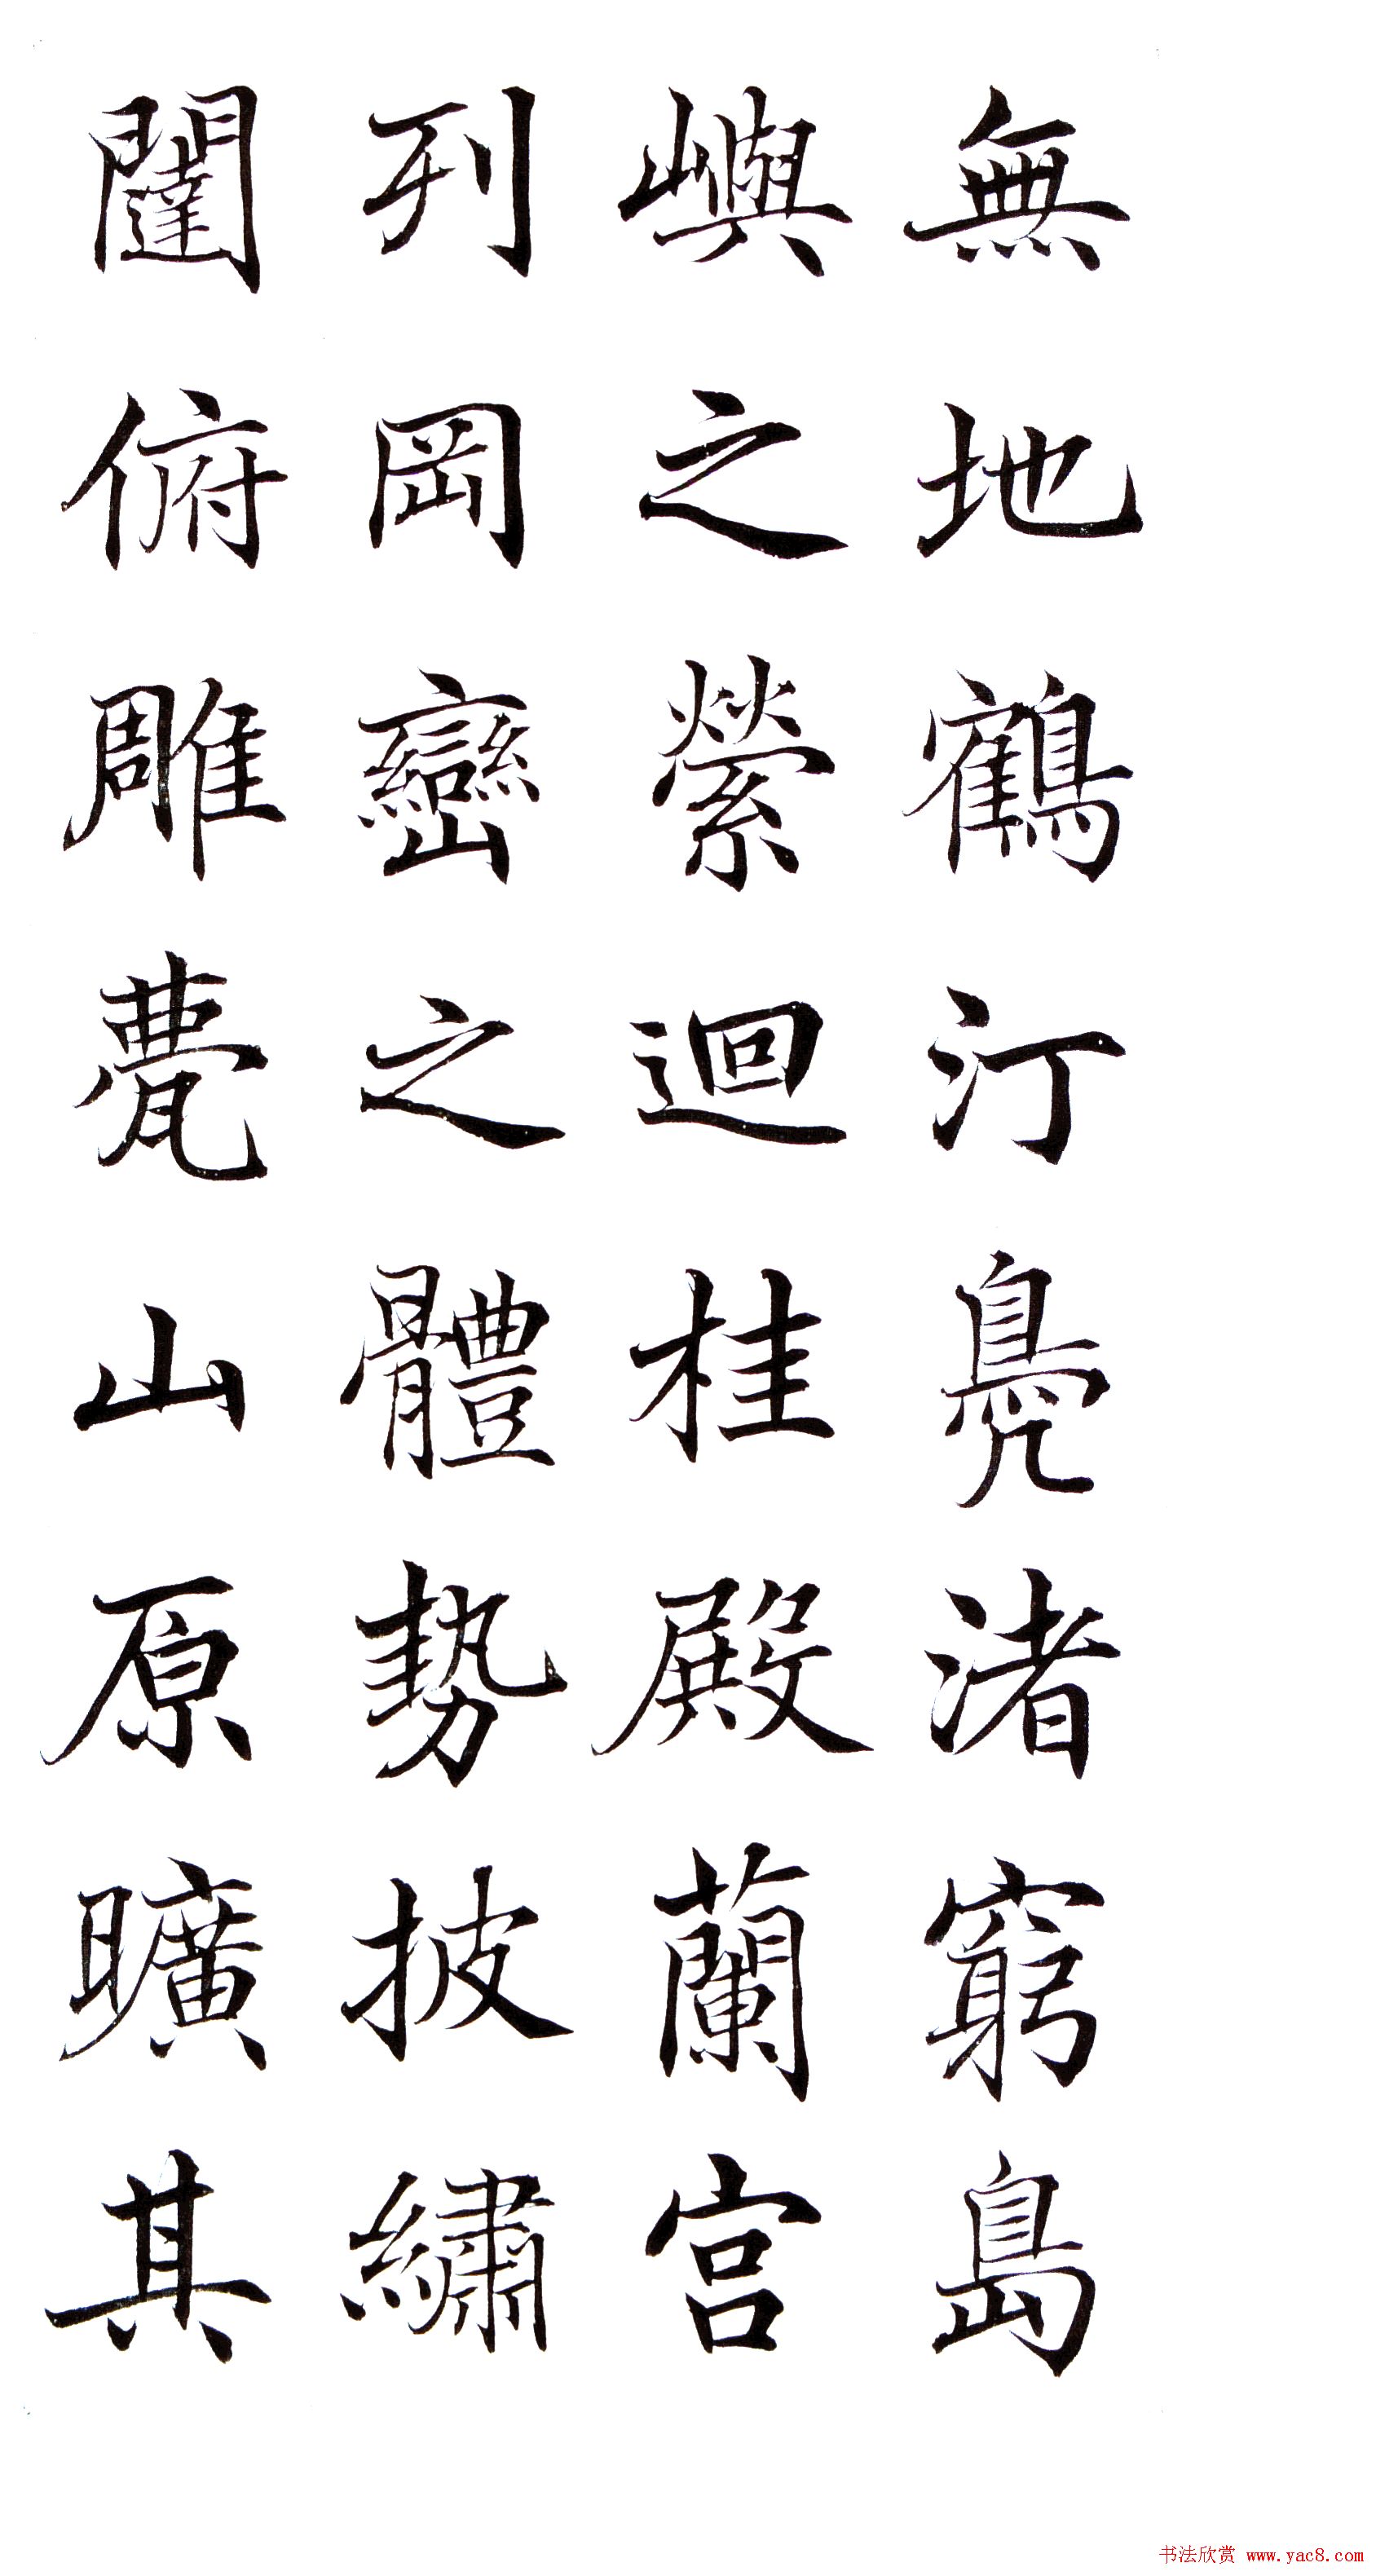 無地鶴汀鳧渚窮島
嶼之縈迴桂殿蘭宮
列岡巒之體勢披繡
闥俯雕甍山原曠其
书法欣赏 www.yac8.com